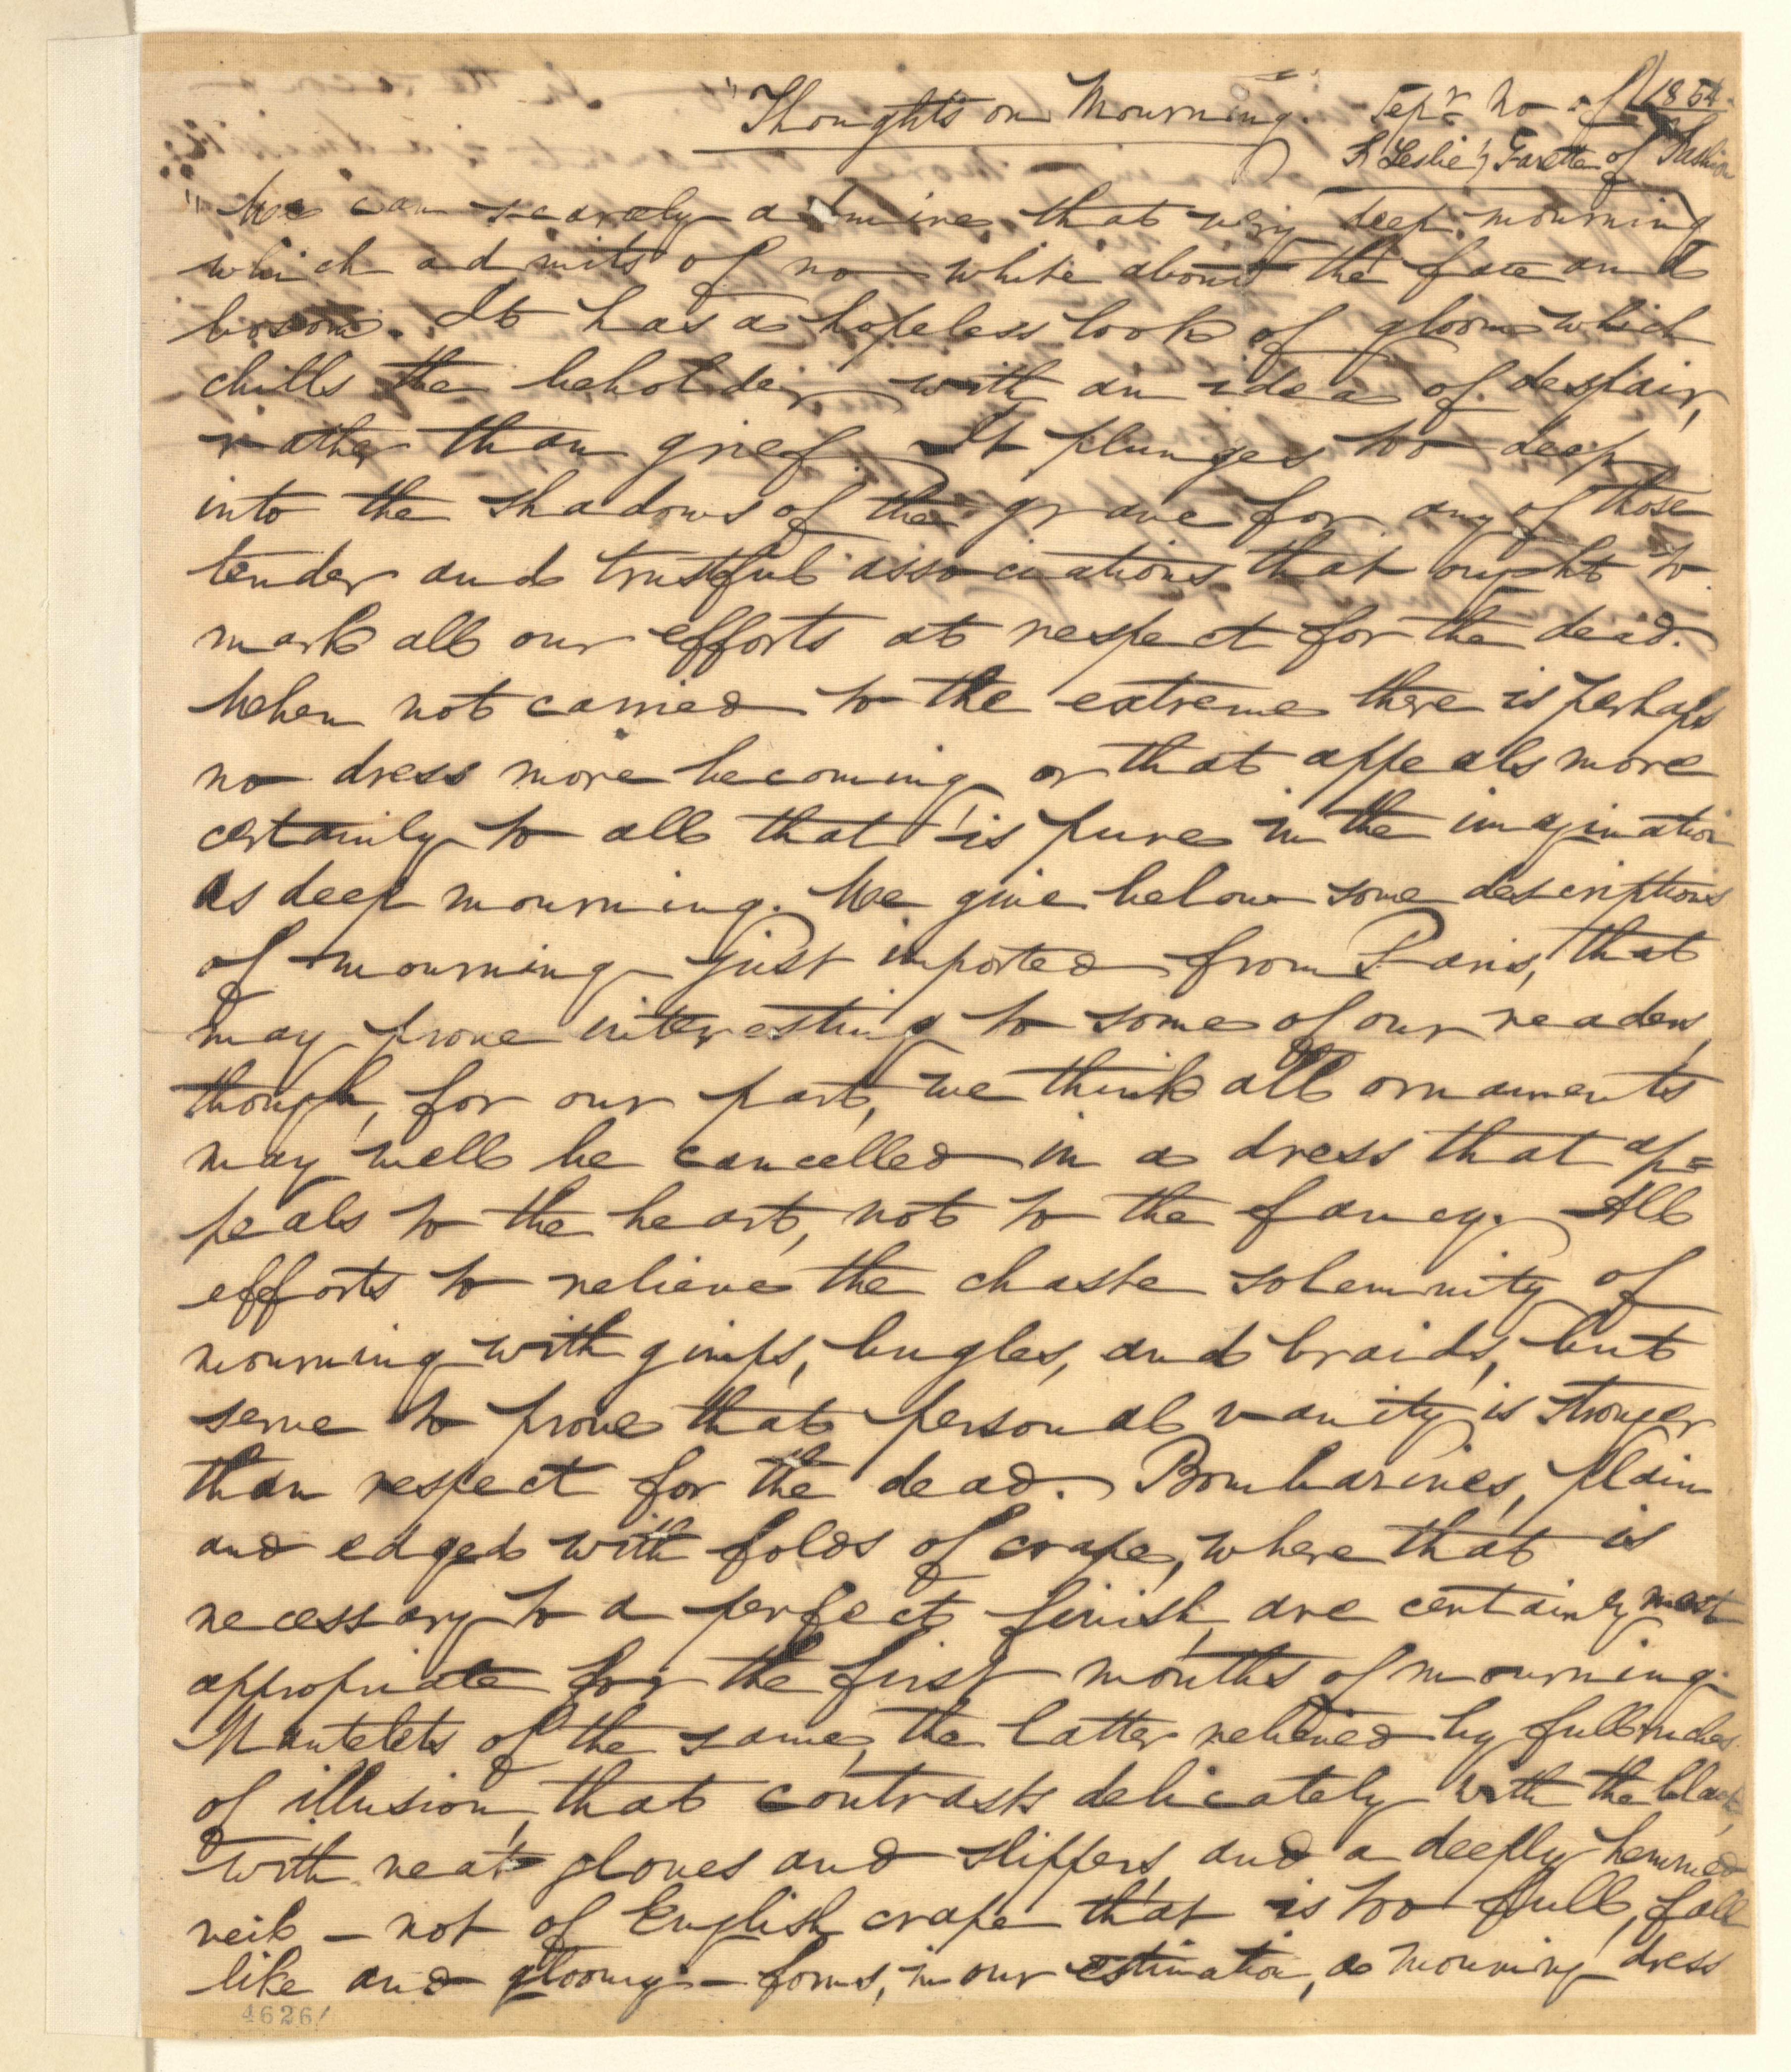 "Thoughts on Mourning. Sepr. No of 1854
F Leslie's Gazette of Fashion
"We can scarcely admire that very deep mourning
which admits of no white about the face and
bosom. It has a hopeless look of gloom which
chills the beholder with an idea of despair,
rather than grief. It plunges too deep
into the shadows of the grave for any of those
tender and trustful associations that ought to
mark all our efforts at respect for the dead.
When not carried to the extreme there is perhaps
no dress more becoming or that appeals more
certainly to all that is pure in the imagination
as deep mourning. We give below some descriptions
of mourning just imported from Paris, that
may prove interesting to some of our readers,
though, for our part, we think all ornaments
may well be cancelled in a dress that ap=
peals to the heart, not to the fancy. All
efforts to relieve the chaste solemnity of
mourning with gimps, bugles, and braids, but
serve to prove that personal vanity is stronger
than respect for the dead. Bombazines, plain
and edged with folds of crape, where that is
necessary to a perfect finish, are certainly most
appropriate for the first months of mourning.
Mantelets of the same, the latter relieved by full ruches
of illusion, that contrasts delicately with the black,
with neat gloves and slippers, and a deeply hemmed
veil – not of English crape that is too full,
like and gloomy – forms, in our estimation, a mourning dress
4626